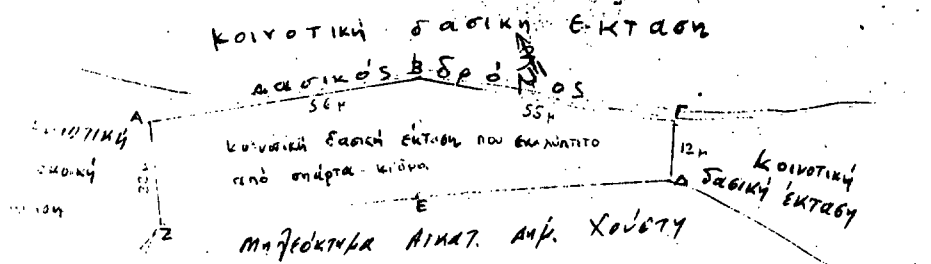 κοινοτική δασική έκταση
Δασικός Β δρόμος
Α 56 μ 55 μ Γ
κοινοτική δασική έκταση που εκαλύπτετο
από σπάρτα - κισόνα
12 μ
Κοινοτική
δασική έκταση
Ε Δ
Ζ
Μηλεόκτημα Αικατ. Δημ. Χούστη